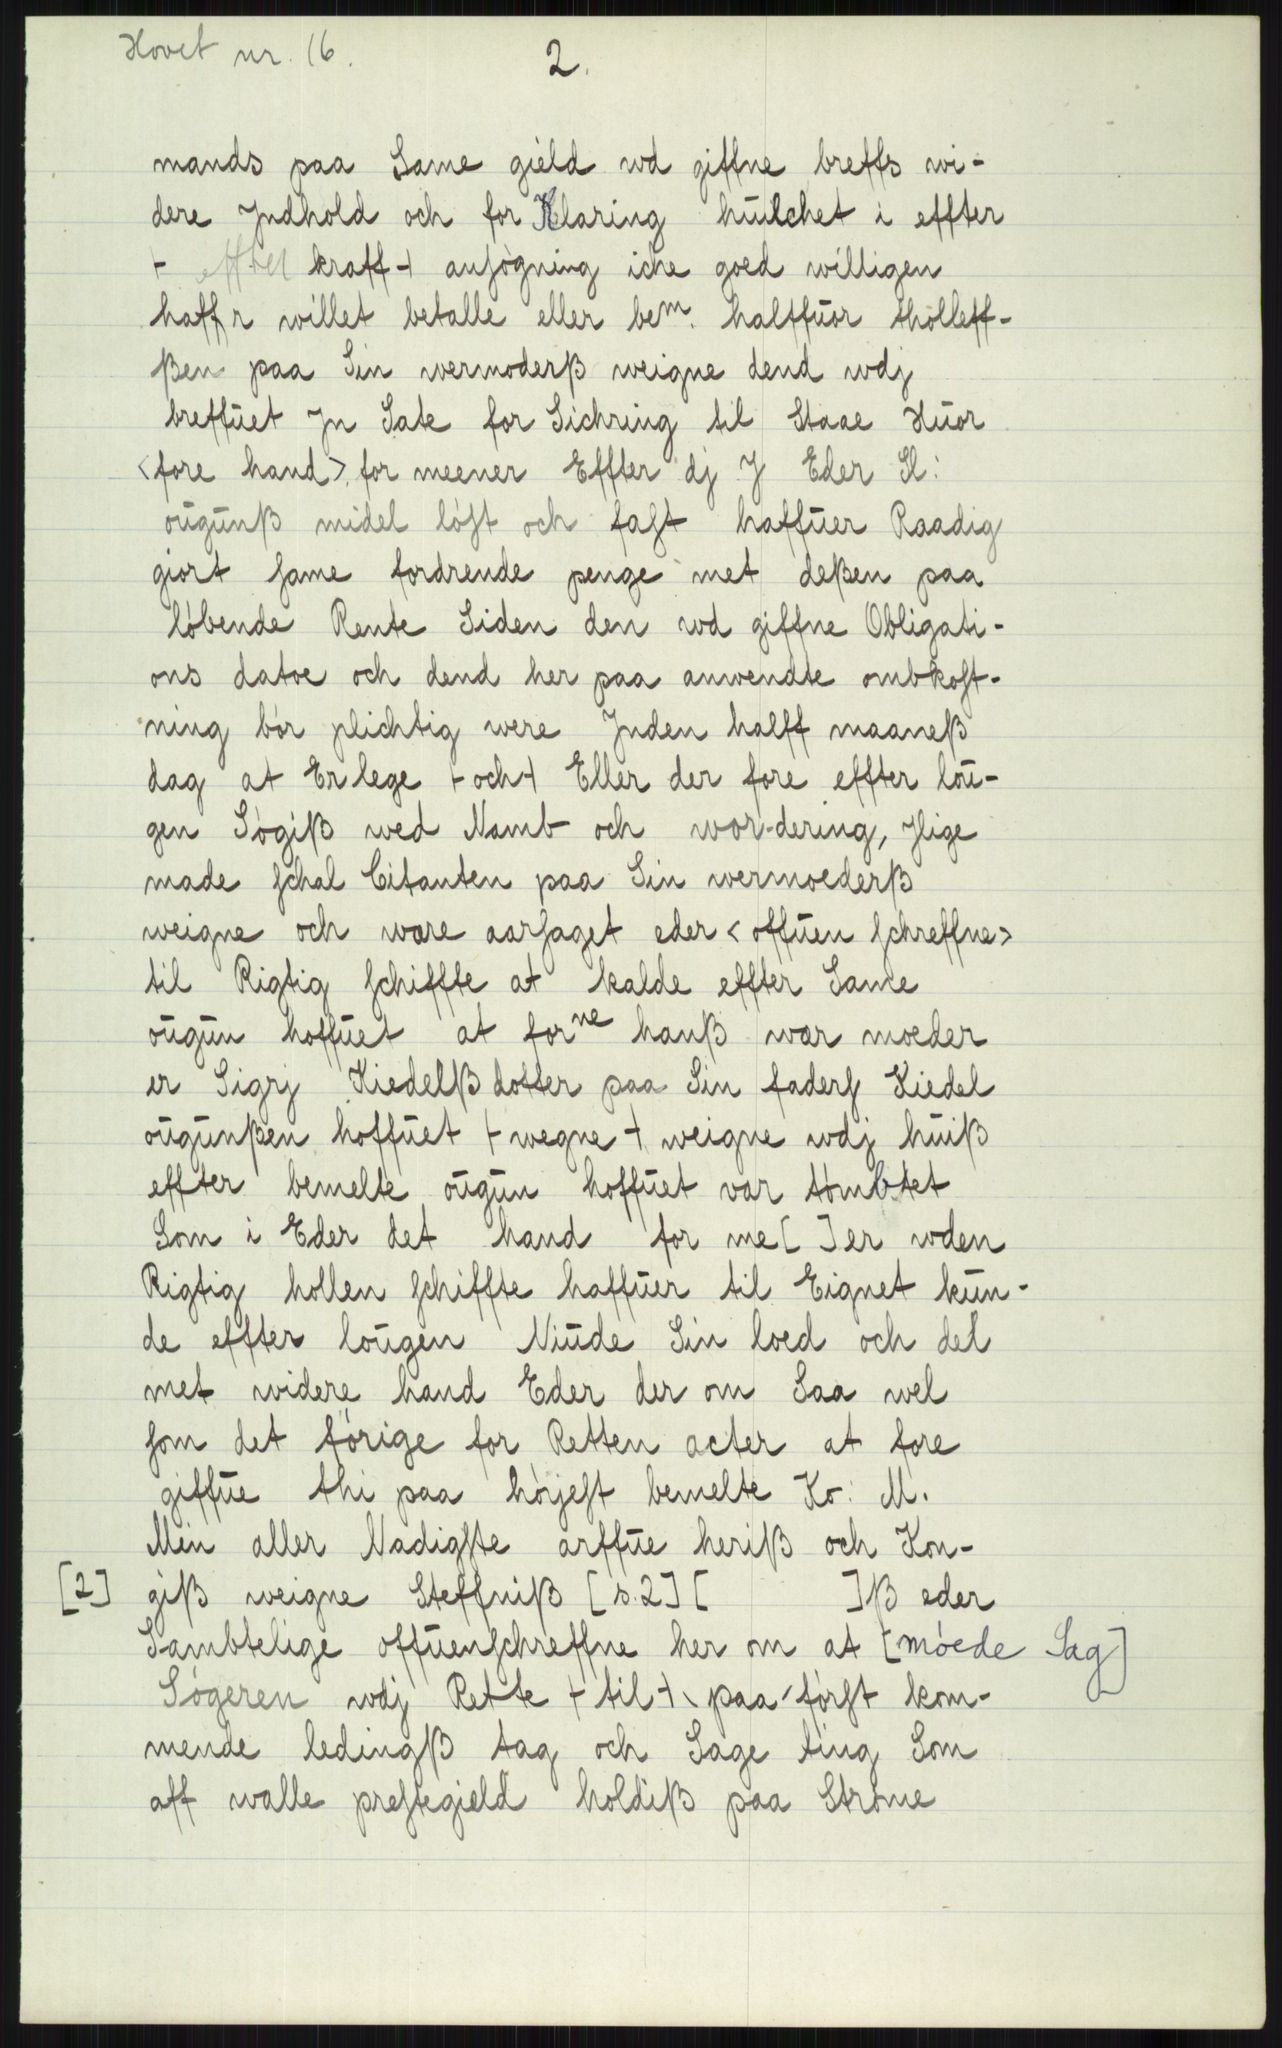 Hovet nr. 16.
2.
mands paa Same gield wd giffne breffs wi-
dere Jndhold och for Klaring huilchet i effter
⊢ effter kraff ⊣ ansögning iche goed willigen
haffr willet betalle eller bem. halffuor tholleff-
ßen paa Sin wermoderß weigne dend wdj
breffuet Jn Sate for Sichring til Staae Huor
<fore hand> for meener Effter dj J Eder Sl:
ougunß midel löst och fast haffuer Raadig
giort same fordrende penge met deßen paa
löbende Rente Siden den wd giffne Obligati-
ons datoe och dend her paa anwendte ombkost-
ning bör plichtig were Jnden halff maaneß
dag at Erlege ⊢och⊣ Eller der fore effter lou-
gen Sögiß wed Namb och wor-dering, Jlige
made schal Citanten paa Sin wermoederß
weigne och wære aarsaget eder <offuen schreffne>
til Rigtig schiffte at kalde effter Same
ougun hoffuet at forne hanß wær moeder
er Sigrj Kiedelß dotter paa Sin faders Kiedel
ougunßen hoffuet ⊢wegne⊣ weigne wdj huiß
effter bemelte ougun hoffuet var tömbtet
Som i Eder det hand for me[ ]er wden
Rigtig hollen schiffte haffuer til Eignet kun-
de effter lougen Niude Sin loed och del
met widere hand Eder der om Saa wel
som det förige for Retten acter at fore
giffue thi paa höjest bemelte Ko: M.
Min aller Nadigste arffue heriß och Kon-
[2] giß weigne Steffniß [s.2] [ ]ß eder
Sambtelige offuenschreffne her om at [möede Sag]
Sögeren wdj Rette ⊢til⊣ \paa/ först kom-
mende ledingß tag och Sage ting Som
aff walle prestegield holdiß paa Ströme